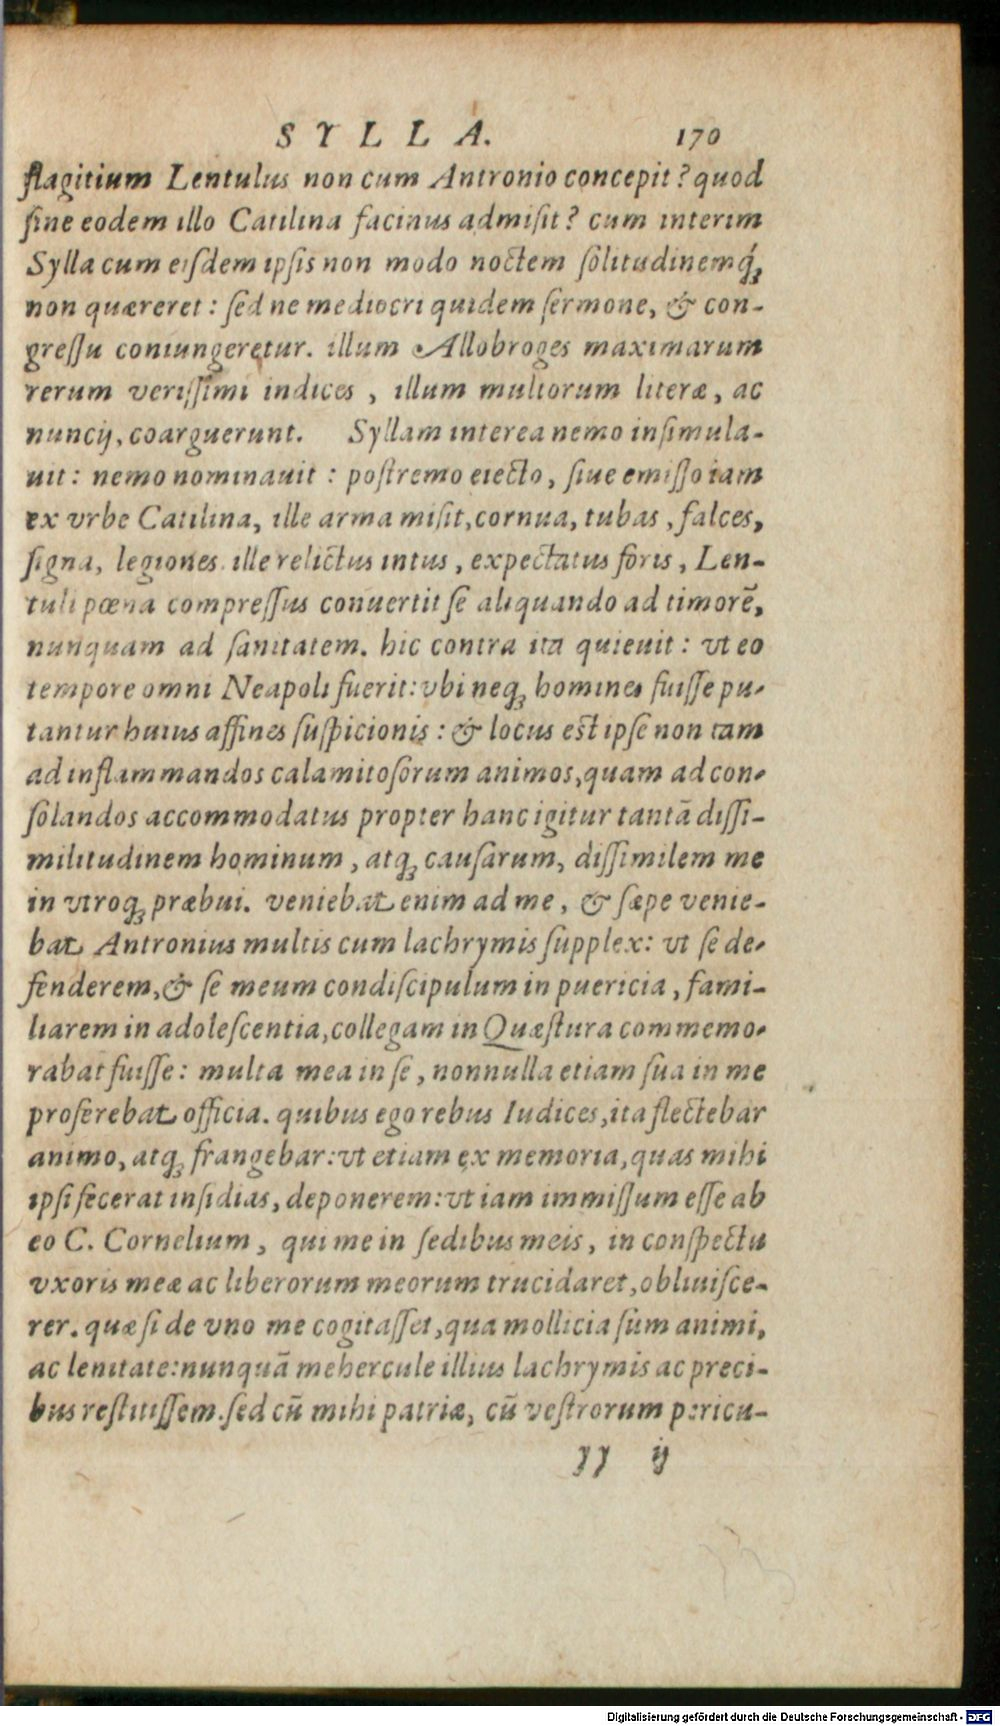 SYLLA. 170
flagitium Lentulus non cum Antronio concepit? quod
sine eodem illo Catilina facinus admisit? cum interim
Sylla cum eisdem ipsis non modo noctem solitudinemq́;
non quæreret: sed ne mediocri quidem sermone, & con-
gressu coniungeretur. illum Allobroges maximarum
rerum verissimi indices, illum multorum literæ, ac
nuncij, coarguerunt. Syllam interea nemo insimula-
uit: nemo nominauit: postremo eiecto, siue emisso iam
ex vrbe Catilina, ille arma misit, cornua, tubas, falces,
signa, legiones. ille relictus intus, expectatus foris, Len-
tuli pœna compressus conuertit se aliquando ad timorē,
nunquam ad sanitatem. hic contra ita quieuit: vt eo
tempore omni Neapoli fuerit: vbi neq; homines fuisse pu-
tantur huius affines suspicionis: & locus est ipse non tam
ad inflammandos calamitosorum animos, quam ad con-
solandos accommodatus propter hanc igitur tantā dissi-
militudinem hominum, atq; causarum, dissimilem me
in vtroq; præbui. veniebat enim ad me, & sæpe venie-
bat Antronius multis cum lachrymis supplex: vt se de-
fenderem, & se meum condiscipulum in puericia, fami-
liarem in adolescentia, collegam in Quæstura commemo-
rabat fuisse: multa mea in se, nonnulla etiam sua in me
proferebat officia. quibus ego rebus Iudices, ita flectebar
animo, atq; frangebar: vt etiam ex memoria, quas mihi
ipsi fecerat insidias, deponerem: vt iam immissum esse ab
eo C. Cornelium, qui me in sedibus meis, in conspectu
vxoris meæ ac liberorum meorum trucidaret, obliuisce-
rer. quæ si de vno me cogitasset, qua mollicia sum animi,
ac lenitate: nunquā mehercule illius lachrymis ac preci-
bus restitissem. sed cū mihi patriæ, cū vestrorum pericu-
yy ij
Digitalisierung gefördert durch die Deutsche Forschungsgemeinschaft - DFG